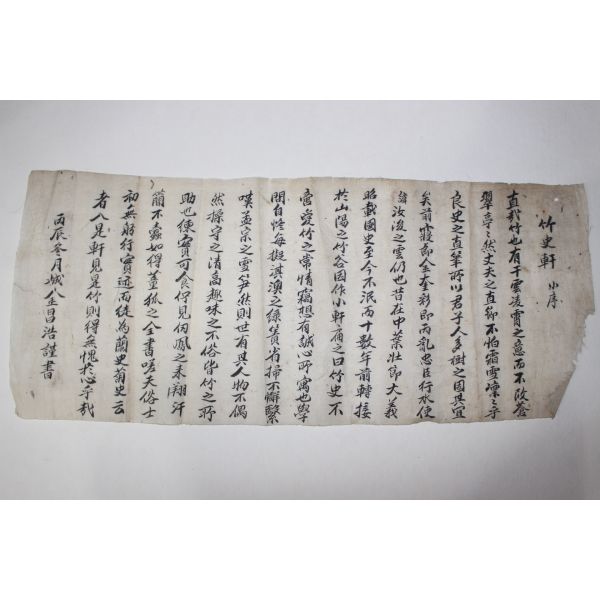 竹史軒 小序
直哉竹也有干雲凌霄之意而不改蒼
翠亭〻然丈夫之直節不怕霜雪凜〻乎
良史之直筆所以君子人多樹之園其宜
矣前 節金奎彩即而亂忠臣行水使
汝浚之雲仍也昔在中葉壯節大義
昭載國史至今不泯而十數年前轉接
於山陽之竹谷因作小軒扁之曰竹史不
啻愛竹之常情竊想有誠心所寓也學
問自修每擬淇澳之綠簀省掃不懈繄
嘆孟宗之雪笋然則世有其人物不偶
然操守之清高趣味之不俗皆竹之所
助也使實可食佇見伯鳳之來翔汗
簡不蠹如得董狐之全書嗟夫俗士
初無躬行實迹而徒為蘭史菊史云
者入見軒見是竹則得無愧於心乎哉
丙辰冬月 金昌浩謹書